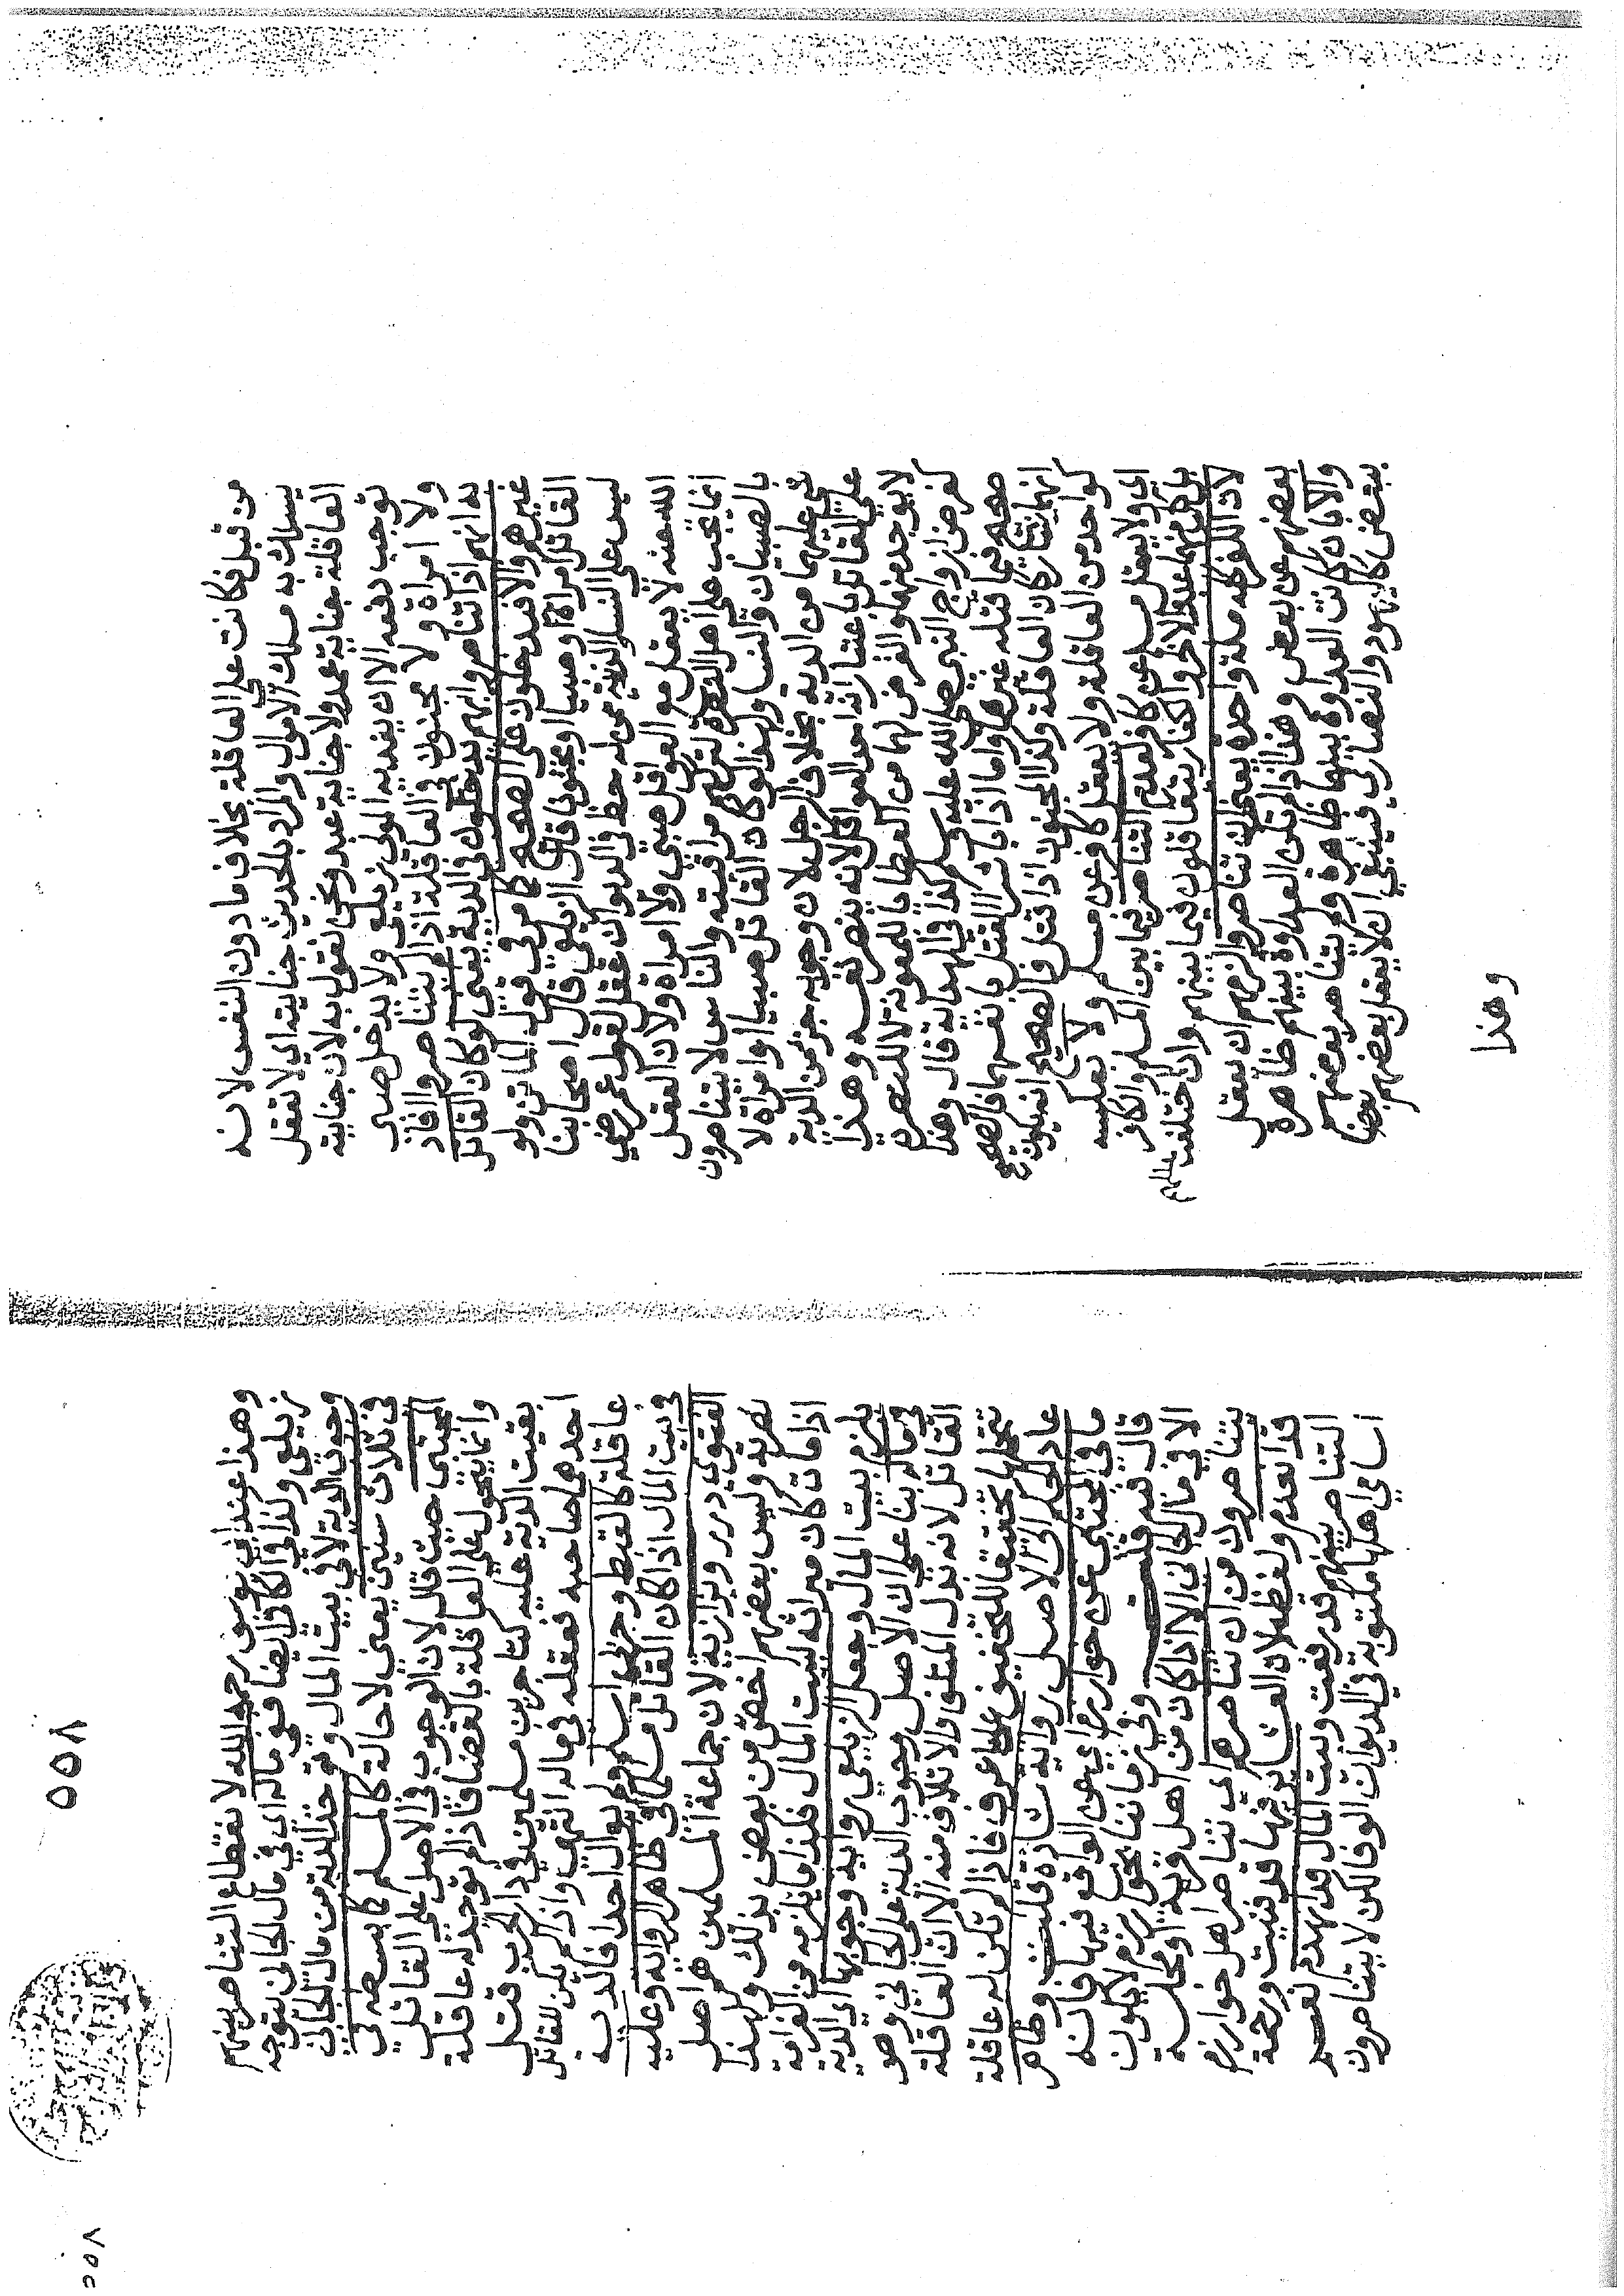 من قبل فكانت على العاقلة بخلاف ما دون النفس لانه
يسلك به مسلك الاموال والمراد بالحديث جنايته اي لا تعقل
العاقلة جناية عمد ولا جناية عبد ونحن نقول به لان جنايته
توجب دفعه الا ان يفديه المولى زيلعي ولا يدخل صبي
ولا امراة ولا مجنون في العاقلة اذا لم يتناصروا افاد
به انهم اذا تناصروا بهم يدخلون في الدية يعني لو كان القاتل
غيرهم والا فيدخلون على الصحيح كما مر في قول الماتن ولو
القاتل امراة او صبيا او مجنونا قال الزيلعي قال اصحابنا
ليس على النسا والذرية ممن له حظ في الديوان عقل لقول عمر رضي
الله عنه لا يعقل مع العواقل صبي ولا امراة ولان العقل
انما يجب على اهل النصرة لتركهم مراقبته والناس لا يتناصرون
بالصبيان والنسا ولهذا لو كان القاتل صبيا او امراة لا
شي عليهما من الدية بخلاف الرجل لان وجوب جزء من الدية
على القاتل باعتبار انه احد العواقل لانه ينصر نفسه وهذا
لا يوجد منهما والفرض لهما من العطا للمعونة لا للنصرة
كفرض ازواج النبي صلى الله عليه وسلم كذا في الهداية قال وهذا
صحيح فيما قتله غيرهما واما اذا باشرا القتل بانفسهما فالصحيح
انهما يشاركان العاقلة وكذا المجنون اذا قتل فالصحيح انه يكون
كواحد من العاقلة ولا يعقل كافر عن مسلم ولا بعكسه
اي ولا يعقل مسلم عن كافر لعدم التناصر فيما بين المسلم والكافر
والكفار يتعاقلون فيما بينهم وان اختلفت مللهم
لان الكفر كله ملة واحدة يعني ان تناصروا لزمهم ان يعقل
بعضهم عن بعض وهذا اذا لم تكن العداوة بينهم ظاهرة
والا بان كانت العداوة بينهما ظاهرة ولم يتناصر بعضهم
ببعض كاليهود والنصارى فينبغي ان لا يعقل بعضهم بعضا
وهذا
٥٥٨
وهذا عند ابي يوسف رحمه الله لانقطاع التناصر بينهم
زيلعي وكذا في الكافي ايضا ففي ماله اي في مال الجاني
وجوب الدية لا في بيت المال وتؤخذ الدية من مال الجاني
في ثلاث سنين يعني لا حالة كالمسلم كما بسطه في
المجتبى حيث قال لان الوجوب في الاصل على القاتل
وانما يتحول على العاقلة بالقضا فاذا لم توجد له عاقلة
بقيت الدية عليه كتاجرين مسلمين في دار الحرب قتل
احدهما صاحبه فعقله في ماله انتهى وان لم يكن للقاتل
عاقلة كاللقيط وحربي اسلم ولم يوال احدا فالدية
في بيت المال اذا كان القاتل مسلما في ظاهر الرواية وعليه
الفتوى درر وبزازية لان جماعة المسلمين هم اهل
نصرته وليس بعضهم اخص من بعض بذلك ولهذا
اذا مات كان ميراثه لبيت المال فكذا ما يلزمه من الغرامة
يلزم بيت المال وجعل الزيلعي رواية وجوبها اي الدية
في ماله بنا على ان الاصل وجوب الدية على الجاني وهو
القاتل لانه بدل المتلف والاتلاف منه الا ان العاقلة
تتحملها تحقيقا للتخفيف على ما عرف فاذا لم تكن له عاقلة
عاد الحكم الى الاصل رواية شاذة قلت وظاهر
ما في المجتبى عن خوارزم اي عن الواقع فيها فانه
قال فيه قلت وفي زماننا بخوارزم لا يكون
الا في مال الجاني الا اذا كان من اهل قرية او محلة
يتناصرون من ان تناصرهم اي تناصر اهل خوارزم
قد انعدم ولفظه لان العشاير فيها قد فنيت ورحمة
التناصر بينهم قد رفعت وبيت المال قد انهدم نعم
اسامي اهلها مكتوبة في الديوان الوفا لكن لا يتناصرون
٥٥٨